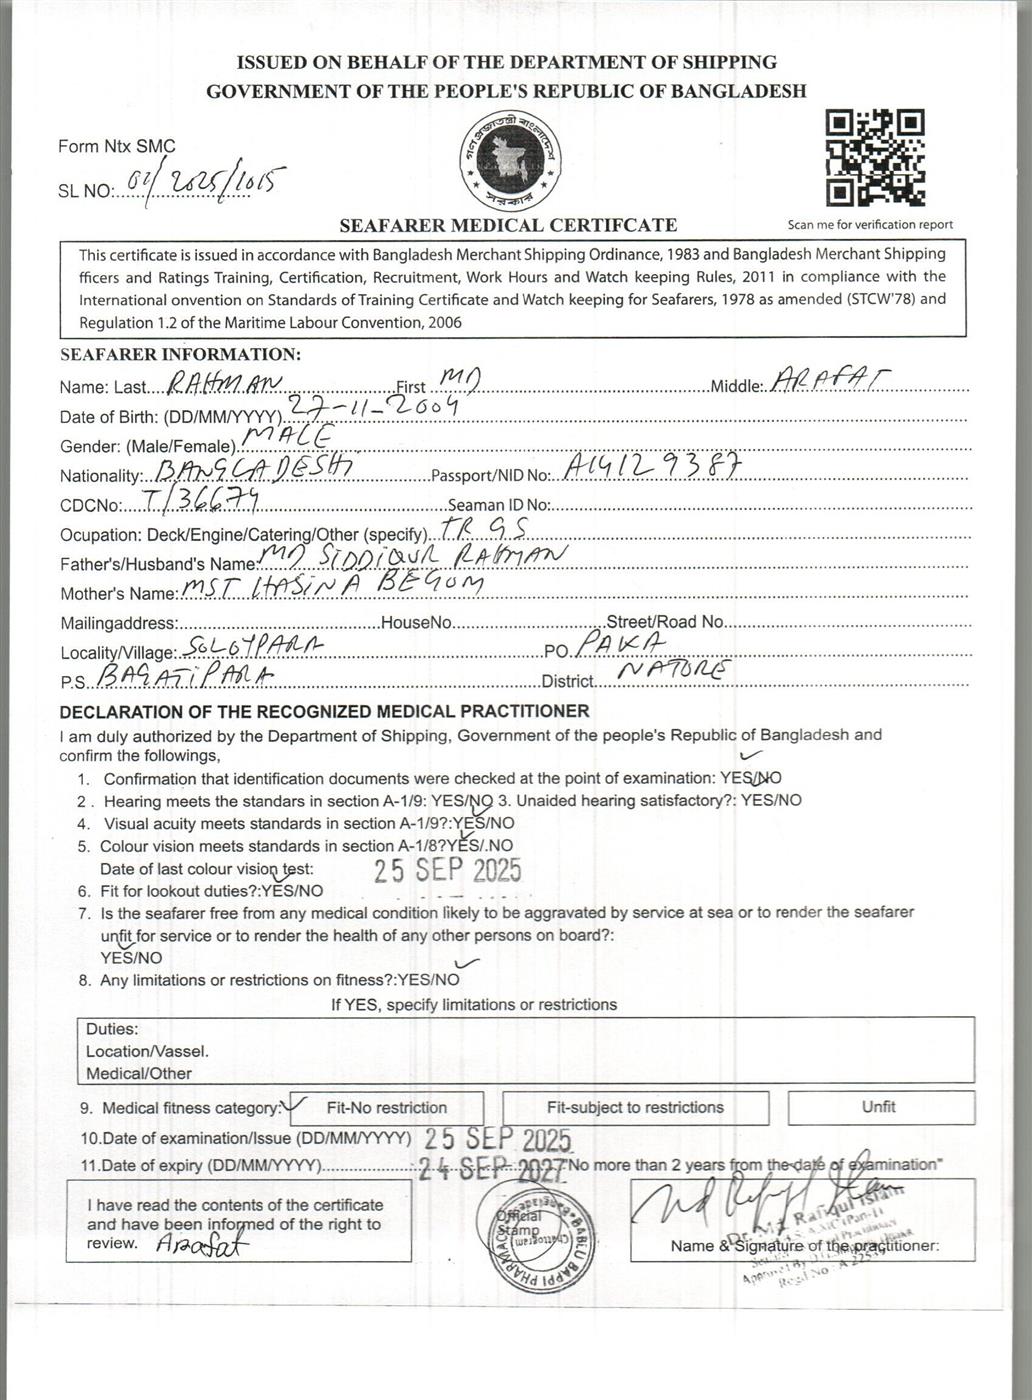 ISSUED ON BEHALF OF THE DEPARTMENT OF SHIPPING
GOVERNMENT OF THE PEOPLE'S REPUBLIC OF BANGLADESH
গণপ্রজাতন্ত্রী বাংলাদেশ
সরকার
Form Ntx SMC
SL NO: 04/2025/1015
SEAFARER MEDICAL CERTIFCATE
Scan me for verification report
This certificate is issued in accordance with Bangladesh Merchant Shipping Ordinance, 1983 and Bangladesh Merchant Shipping
fficers and Ratings Training, Certification, Recruitment, Work Hours and Watch keeping Rules, 2011 in compliance with the
International onvention on Standards of Training Certificate and Watch keeping for Seafarers, 1978 as amended (STCW'78) and
Regulation 1.2 of the Maritime Labour Convention, 2006
SEAFARER INFORMATION:
Name: Last RAHMAN First MD Middle: ARAFAT
Date of Birth: (DD/MM/YYYY) 27-11-2004
Gender: (Male/Female) MALE
Nationality: BANGLADESHI Passport/NID No: A14129387
CDCNo: T/36674 Seaman ID No:
Ocupation: Deck/Engine/Catering/Other (specify) TR GS
Father's/Husband's Name: MD SIDDIQUR RAHMAN
Mother's Name: MST HASINA BEGOM
Mailingaddress: HouseNo Street/Road No
Locality/Village: SOLOYPARA PO. PAKA
P.S. BAGATIPARA District NATORE
DECLARATION OF THE RECOGNIZED MEDICAL PRACTITIONER
I am duly authorized by the Department of Shipping, Government of the people's Republic of Bangladesh and
confirm the followings,
1. Confirmation that identification documents were checked at the point of examination: YES/NO
2 . Hearing meets the standars in section A-1/9: YES/NO 3. Unaided hearing satisfactory?: YES/NO
4. Visual acuity meets standards in section A-1/9?:YES/NO
5. Colour vision meets standards in section A-1/8?YES/.NO
Date of last colour vision test: 25 SEP 2025
6. Fit for lookout duties?:YES/NO
7. Is the seafarer free from any medical condition likely to be aggravated by service at sea or to render the seafarer
unfit for service or to render the health of any other persons on board?:
YES/NO
8. Any limitations or restrictions on fitness?:YES/NO
If YES, specify limitations or restrictions
Duties:
Location/Vassel.
Medical/Other
9. Medical fitness category: Fit-No restriction Fit-subject to restrictions Unfit
10.Date of examination/Issue (DD/MM/YYYY) 25 SEP 2025
11.Date of expiry (DD/MM/YYYY) 24 SEP 2027 "No more than 2 years from the date of examination"
I have read the contents of the certificate
and have been informed of the right to
review. Arafat
Official
Stamp
BABLU BAPPI PHARMACY
Chattogram
Dr. Md. Rafiqul Islam
Name & Signature of the practitioner: